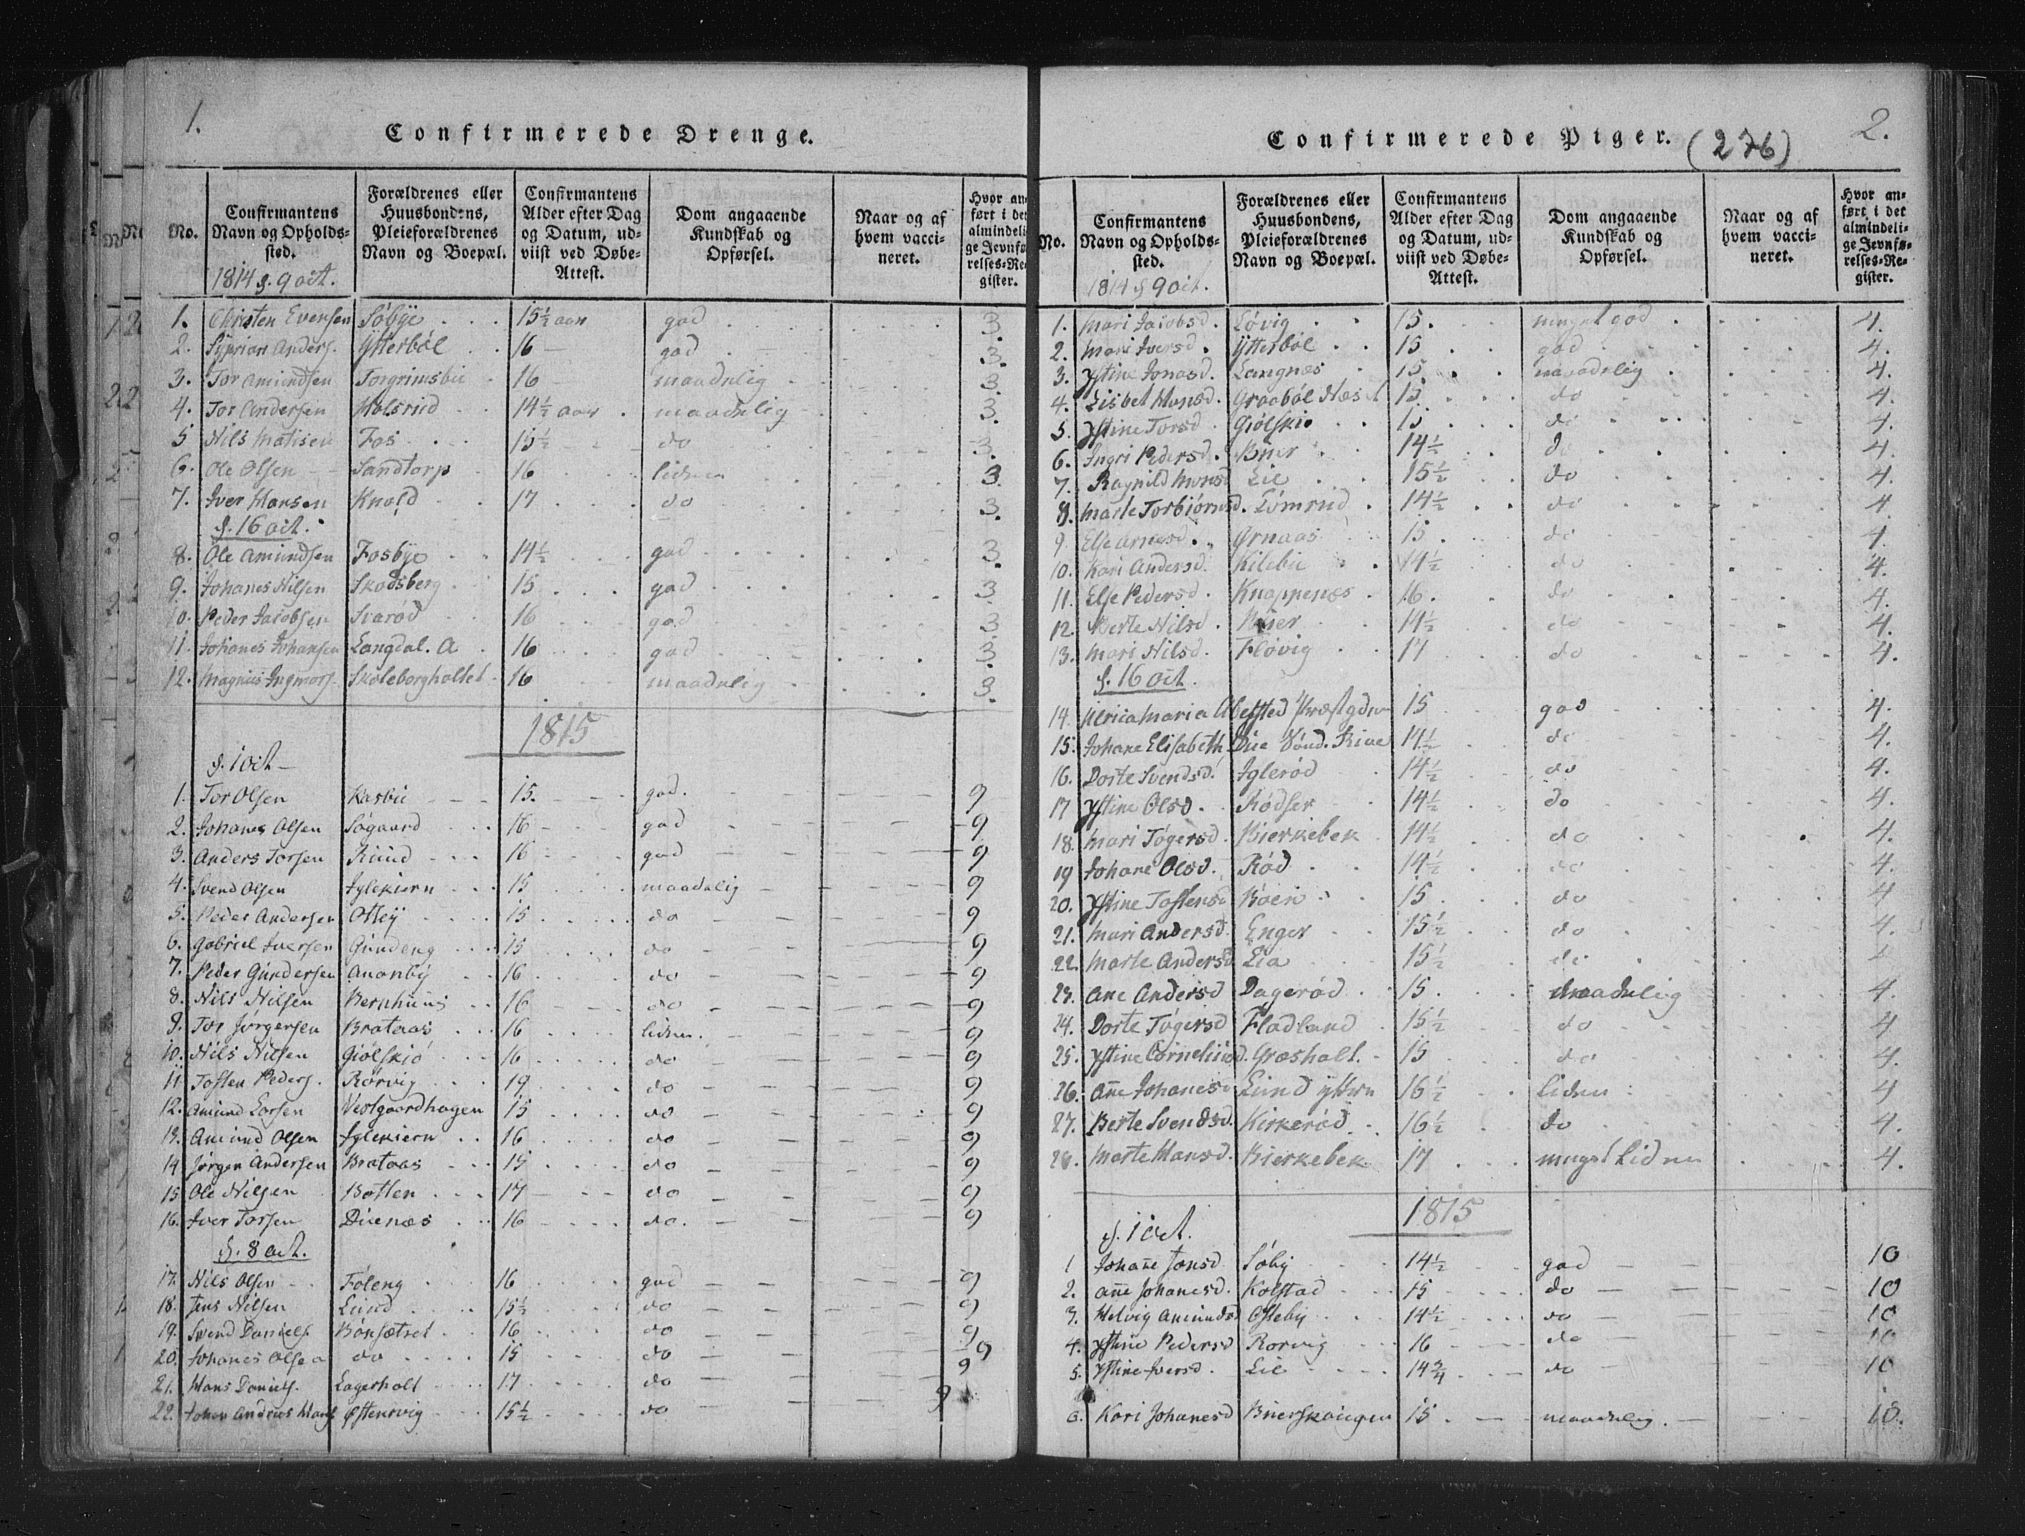 1.
Confirmerede Drenge.
No. | Confirmantens Navn og Opholds-sted. | Forældrenes eller Huusbondens, Pleieforældrenes Navn og Boepæl. | Confirmantens Alder efter Dag og Datum, ud-viist ved Døbe-Attest. | Dom angaaende Kundskab og Opførsel. | Naar og af hvem vacci-neret. | Hvor an-ført i det almindeli-ge Jevnfø-relses-Re-gister.
1814 d. 9 oct.
1. Christen Evensen Søbye 15½ aar god 3.
2. Syprian Anders. Ytterböl 16 god 3.
3. Tor Amundsen Torgrimsbu 16 maadelig 3.
4. Tor Andersen Holsrud 14½ aar maadelig 3.
5 Nils Matisen Fos 15½ do 3.
6. Ole Olsen Sandtorp 16 liden 3.
7. Iver Hansen Knold 17 do 3.
d. 16 oct.
8. Ole Amundsen Fosbye 14½ god 3.
9. Johanes Nilsen Skodsberg 15 god 3.
10. Peder Jacobsen Svarød 16 god 3.
11. Johanes Johansen Langdal. A 16 god 3.
12. Magnus Ingmars. Skoleborgholtet 16 maadelig 3.
1815
d. 1 oct
1. Tor Olsen Kasbu 15. god. 9
2. Johanes Olsen Søgaard 16 god 9
3. Anders Torsen Rund 16 god 9
4. Svend Olsen Iglekiern 15 maadelig 9
5. Peder Andersen Ottey 15 do 9
6. Gabriel Iversen Gundeng 15 do 9
7. Peder Gundersen Anonby 16 do 9
8. Nils Nilsen Berghuus 16 do 9
9. Tor Jørgersen Brataas 16 liden. 9
10. Nils Nilsen Giölskiö 16 do 9
11 Tosten Peders. Rörvig 19 do 9
12. Amund Larsen Vestgaardhagen 15 do 9
13. Amund Olsen Iglekiern 16 do 9
14 Jørgen Andersen Brataas 15 do 9
15 Ole Nilsen Botten 17 do 9
16. Iver Torsen Duenæs 16 do. 9
d. 8 oct.
17. Nils Olsen Føleng 16 god 9
18. Jens Nilsen Lund 15½ do 9
19. Svend Daniels. Bönsætret 16 do 9
20. Johanes Olsen do 15 do 9
21. Hans Daniels. Lagerholt 17 do 9
22. Johan Andreas Hans. Østensvig 15½ do 9
2.
Confirmerede Piger. (276)
No. | Confirmantens Navn og Opholds-sted. | Forældrenes eller Huusbondens, Pleieforældrenes Navn og Boepæl. | Confirmantens Alder efter Dag og Datum, ud-viist ved Døbe-Attest. | Dom angaaende Kundskab og Opførsel. | Naar og af hvem vacci-neret. | Hvor an-ført i det almindeli-ge Jevnfø-relses-Re-gister.
1814 d 9 oct.
1. Mari Jacobsd. Løvig 15. meget god 4.
2. Mari Iversd. Ytterböl 15 god 4.
3. Istine Jonasd. Langnæs 15 maadelig 4.
4. Lisbet Hansd. Graaböl Næst 15. do 4.
5. Istine Torsd. Giölskiø 15 do 4.
6. Ingri Pedersd. Buer 14½ do 4.
7. Ragnild Monsd Lie 15½ do 4.
8. Marte Torbiørnsd. Tömrud 14½ do 4.
9. Else Arnesd. Ørnaas 15 do 4.
10. Kari Andersd. Kilebu 14½ do 4.
11. Else Pedersd. Knappenæs 16. do 4.
12. Berte Nilsd. Buer 14½ do 4.
13. Mari Nilsd. Fløvig 17 do 4.
d. 16 oct.
14. Ulrica Maria Abelsted Præstgden 15 god 4.
15. Johane Elisabeth Due Sönd. Kive 14½ do 4.
16. Dorte Svendsd. Iglerød 14½ do 4.
17 Istine Olsd. Rødser 14½ do 4.
18. Mari Tøgersd. Bierkebek 14½ do 4.
19 Johane Olsd. Rød 14½ do 4.
20. Istine Tostensd Böen 15 do 4
21. Mari Andersd Enger 15½ do 4.
22. Marte Andersd Lia 15½ do 4
23. Ane Andersd Dagerød 15 maadelig 4.
24. Dorte Tøgersd Fladland 15½ do 4
25. Istine Corneliusd. Græsholt. 15 do 4.
26. Añe Johanesd Lund yttern 16½ liden 4
27. Berte Svendsd. Kirkerød 16½ do 4.
28. Marte Hansd. Bierkebek 17 meget liden 4.
1815
d. 1 oct.
1 Johañe Jonsd Søby 14½ god 10
2. Añe Johanesd. Kolstad 15 do 10
3. Helvig Amundsd Østeby 14½ do 10
4. Istine Pedersd Rorvig 16 do 10
5. Istine Iversd. Lie 14¾ do 10
6. Kari Johanesd Buerskougen 15 maadelig. 10.